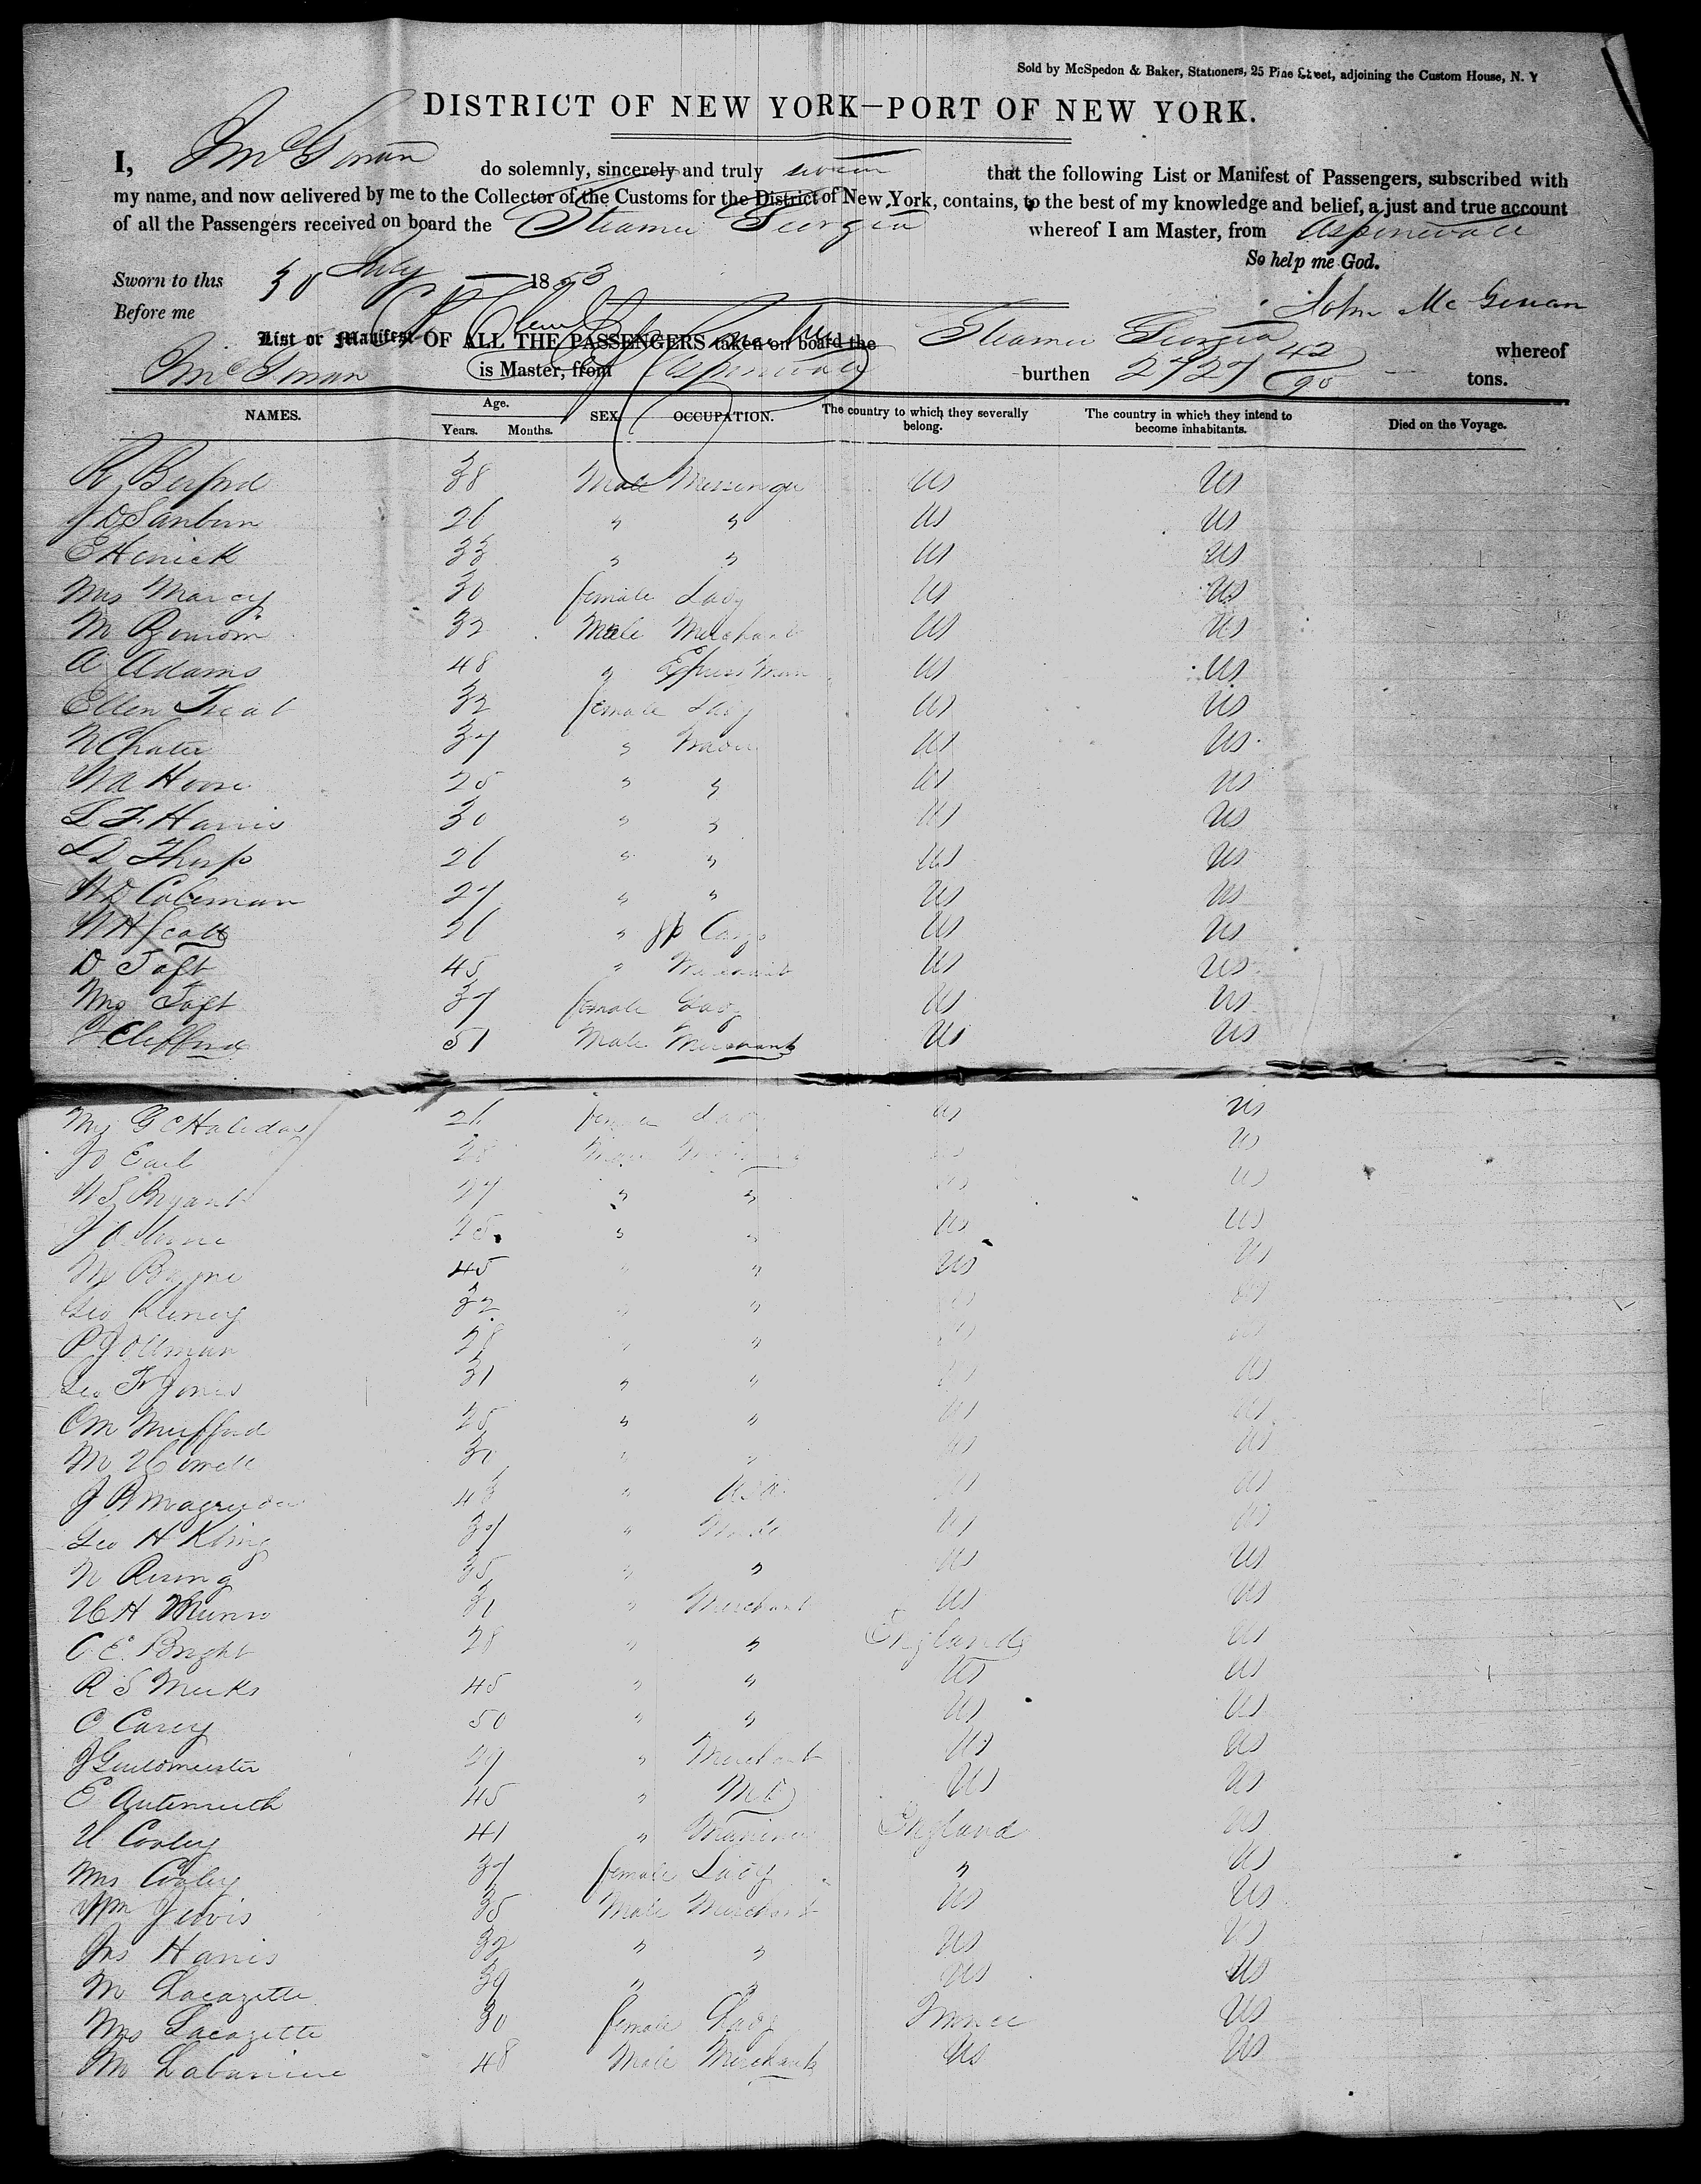 Sold by McSpedon & Baker, Stationers, 25 Pine Street, adjoining the Custom House, N. Y
DISTRICT OF NEW YORK—PORT OF NEW YORK.
I, J McGowan do solemnly, sincerely and truly swear that the following List or Manifest of Passengers, subscribed with
my name, and now delivered by me to the Collector of the Customs for the District of New York, contains, to the best of my knowledge and belief, a just and true account
of all the Passengers received on board the Steamer Georgia whereof I am Master, from Aspinwall
So help me God.
Sworn to this 30 July 1853
Before me John McGowan
List or Manifest OF ALL THE PASSENGERS taken on board the Steamer Georgia whereof
J McGowan is Master, from Aspinwall burthen 2727 42/95 tons.
NAMES. Age. Years. Months. SEX. OCCUPATION. The country to which they severally belong. The country in which they intend to become inhabitants. Died on the Voyage.
R Berford 38 Male Messenger US US
J D Sanborn 26 " " US US
E Herrick 33 " " US US
Mrs Marcy 30 female Lady US US
M 32 Male Merchant US US
A Adams 48 " Express Man US US
Ellen Treat 32 female Lady US US
37 " US US
25 " " US US
L F Harris 30 " " US US
L D Tharp 26 " " US US
W D Coleman 27 " " US US
W H Scott 26 " US US
D Taft 45 " Merchant US US
Mrs Taft 37 female Lady US US
Clifford 51 Male Merchant US US
Mrs G C Haliday 26 female Lady US US
Jo Earl 28 Male US US
W S Bryant 27 " " US US
J 25 " " US US
M 45 " " US US
Geo 32 " " US
28 " " US US
Geo F Jones 31 " " US US
O M Mufford 25 " " US US
M Howell " " US US
J B Magruder 43 " USA US US
Geo H Kling 37 " US US
N Rising 35 " " US US
H H Munro 31 " Merchant US US
C E Bright 28 " " England US
R S Meeks 45 " " US US
C Carey 50 " " US US
J Guildmeister " Merchant US US
E Autenrieth 45 " MD US US
H Cooley 41 " Mariner England US
Mrs Cooley 37 female Lady " US
Wm Jervis 35 Male Merchant US US
Jas Harris 32 " " US US
M Lacazette 39 " " US US
Mrs Lacazette 30 female Lady France US
M 48 Male Merchant US US